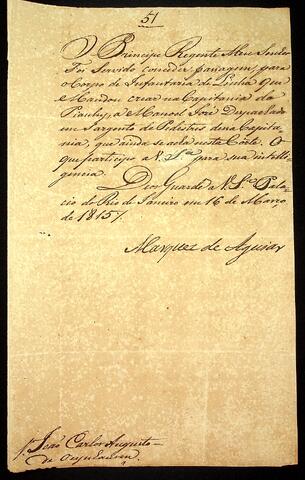 51
O Principe Regente Meu Senhor
Foi Servido conceder passagem para
o Corpo de Infantaria de Linha que
Mandou crear na Capitania do
Piauhy, a Manoel José
Sargento de Pedestres dessa Capita
nia, que ainda se acha nesta Corte. O
que participo a V. S.ª para sua intelli
gencia.
Deos Guarde a V. S.ª Pala
cio do Rio de Janeiro em 16 de Março
de 1815
Marquez de Aguiar
S.r João Carlos Augusto
de Oeynhausen